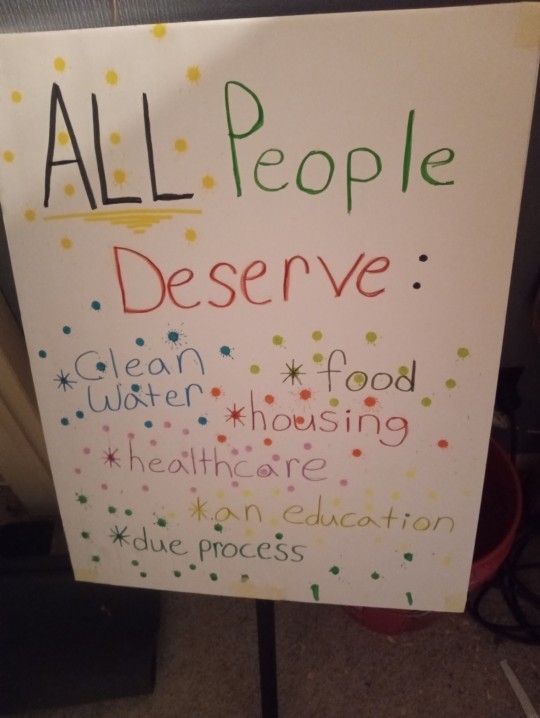 ALL People
Deserve:
*Clean
Water
*food
*housing
*healthcare
*an education
*due process